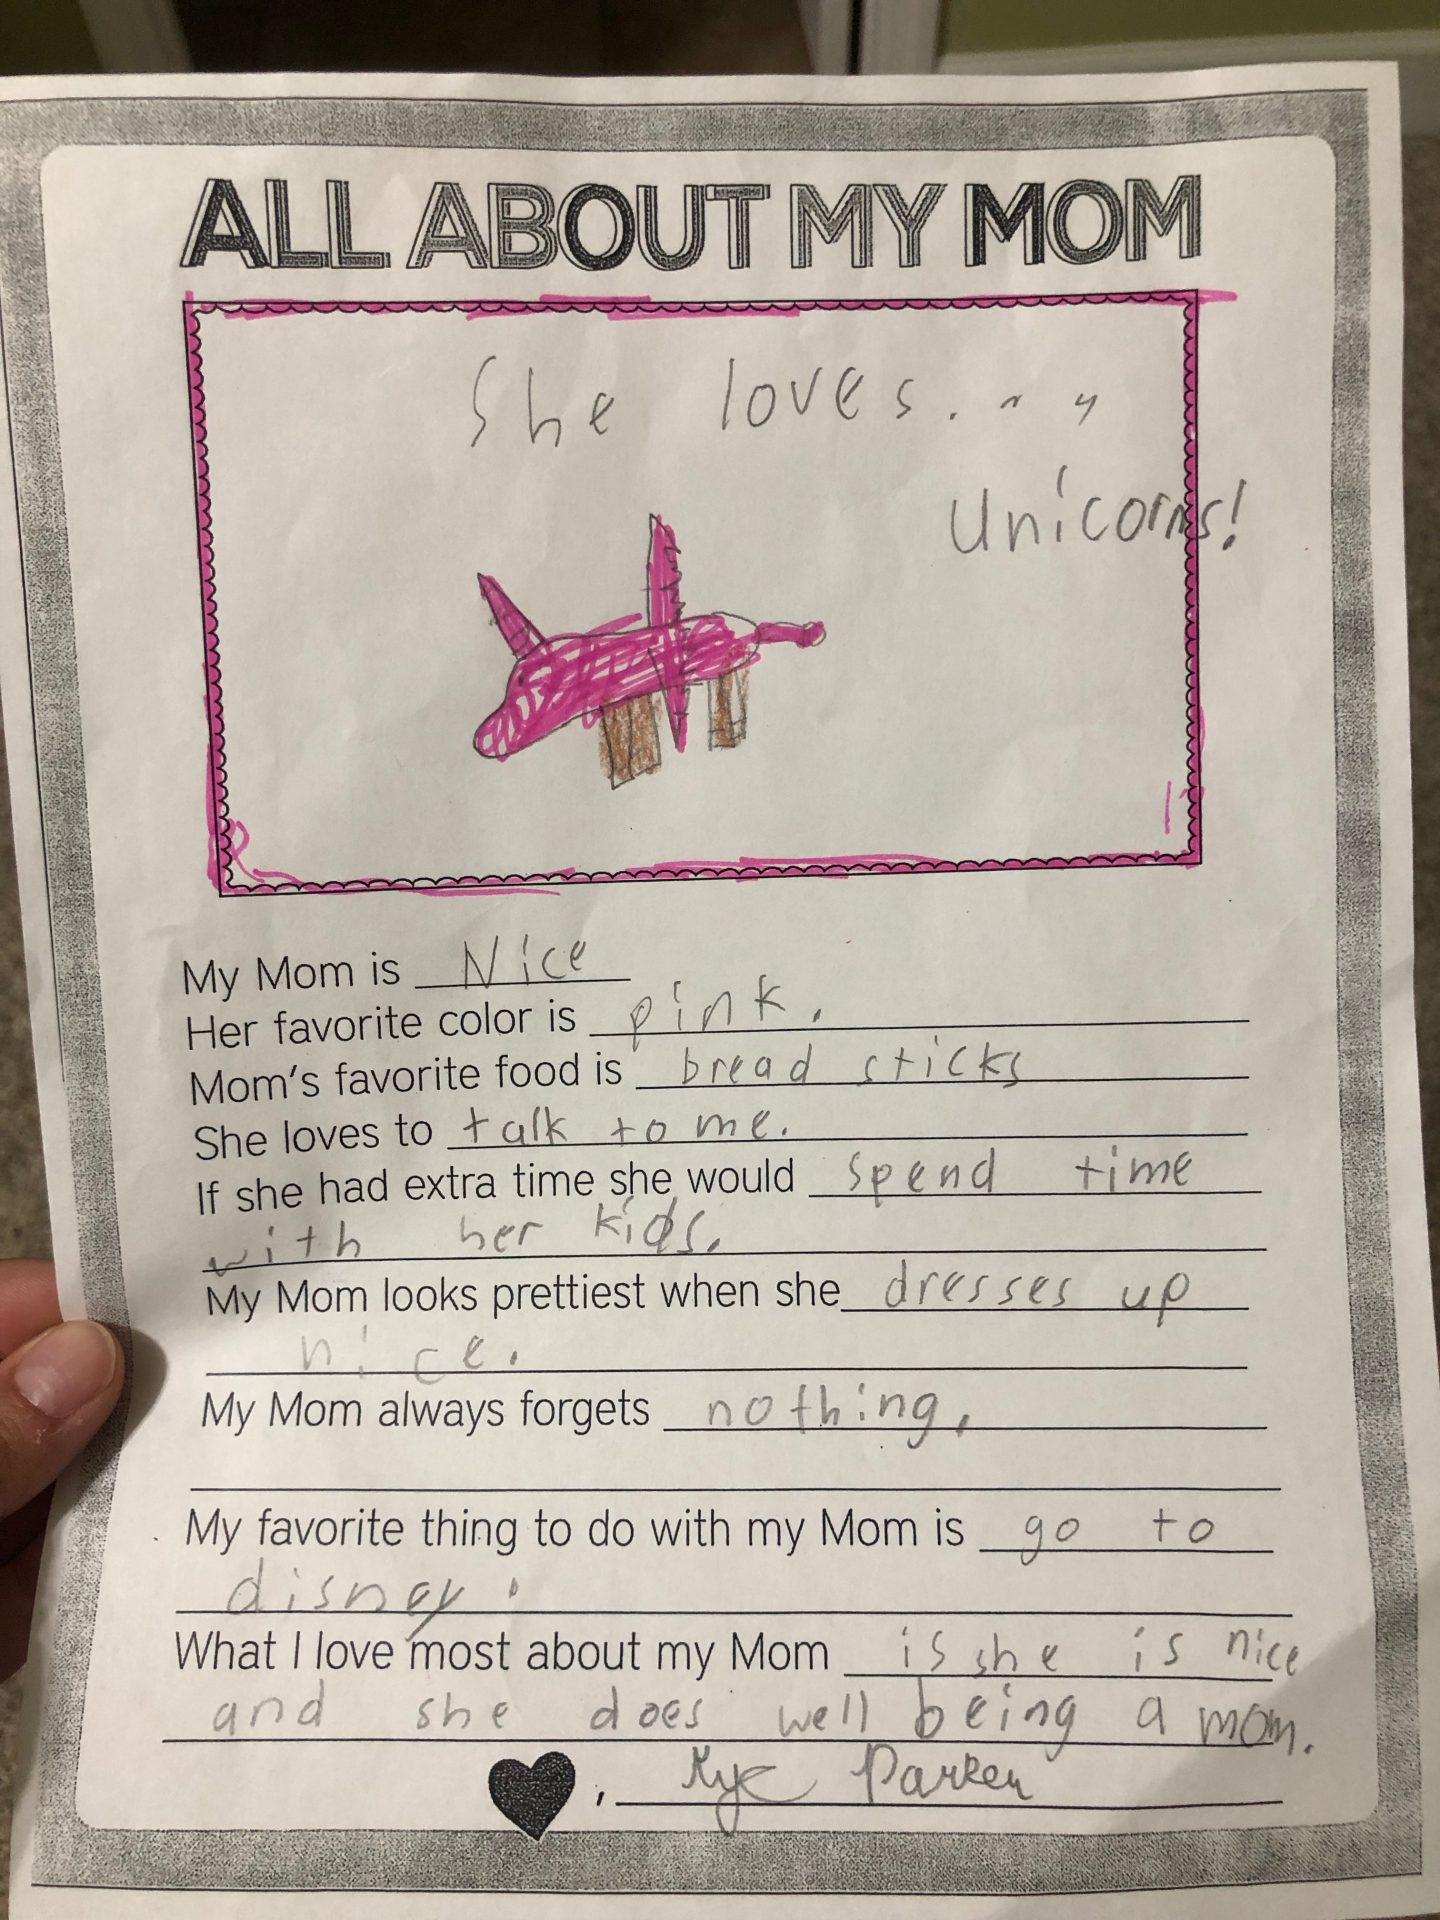 ALL ABOUT MY MOM
She loves....
unicorns!
My Mom is Nice
Her favorite color is pink.
Mom's favorite food is bread sticks
She loves to talk to me.
If she had extra time she would spend time
with her kids.
My Mom looks prettiest when she dresses up
nice.
My Mom always forgets nothing.
My favorite thing to do with my Mom is go to
disney.
What I love most about my Mom is she is nice
and she does well being a mom.
, Kye Parker